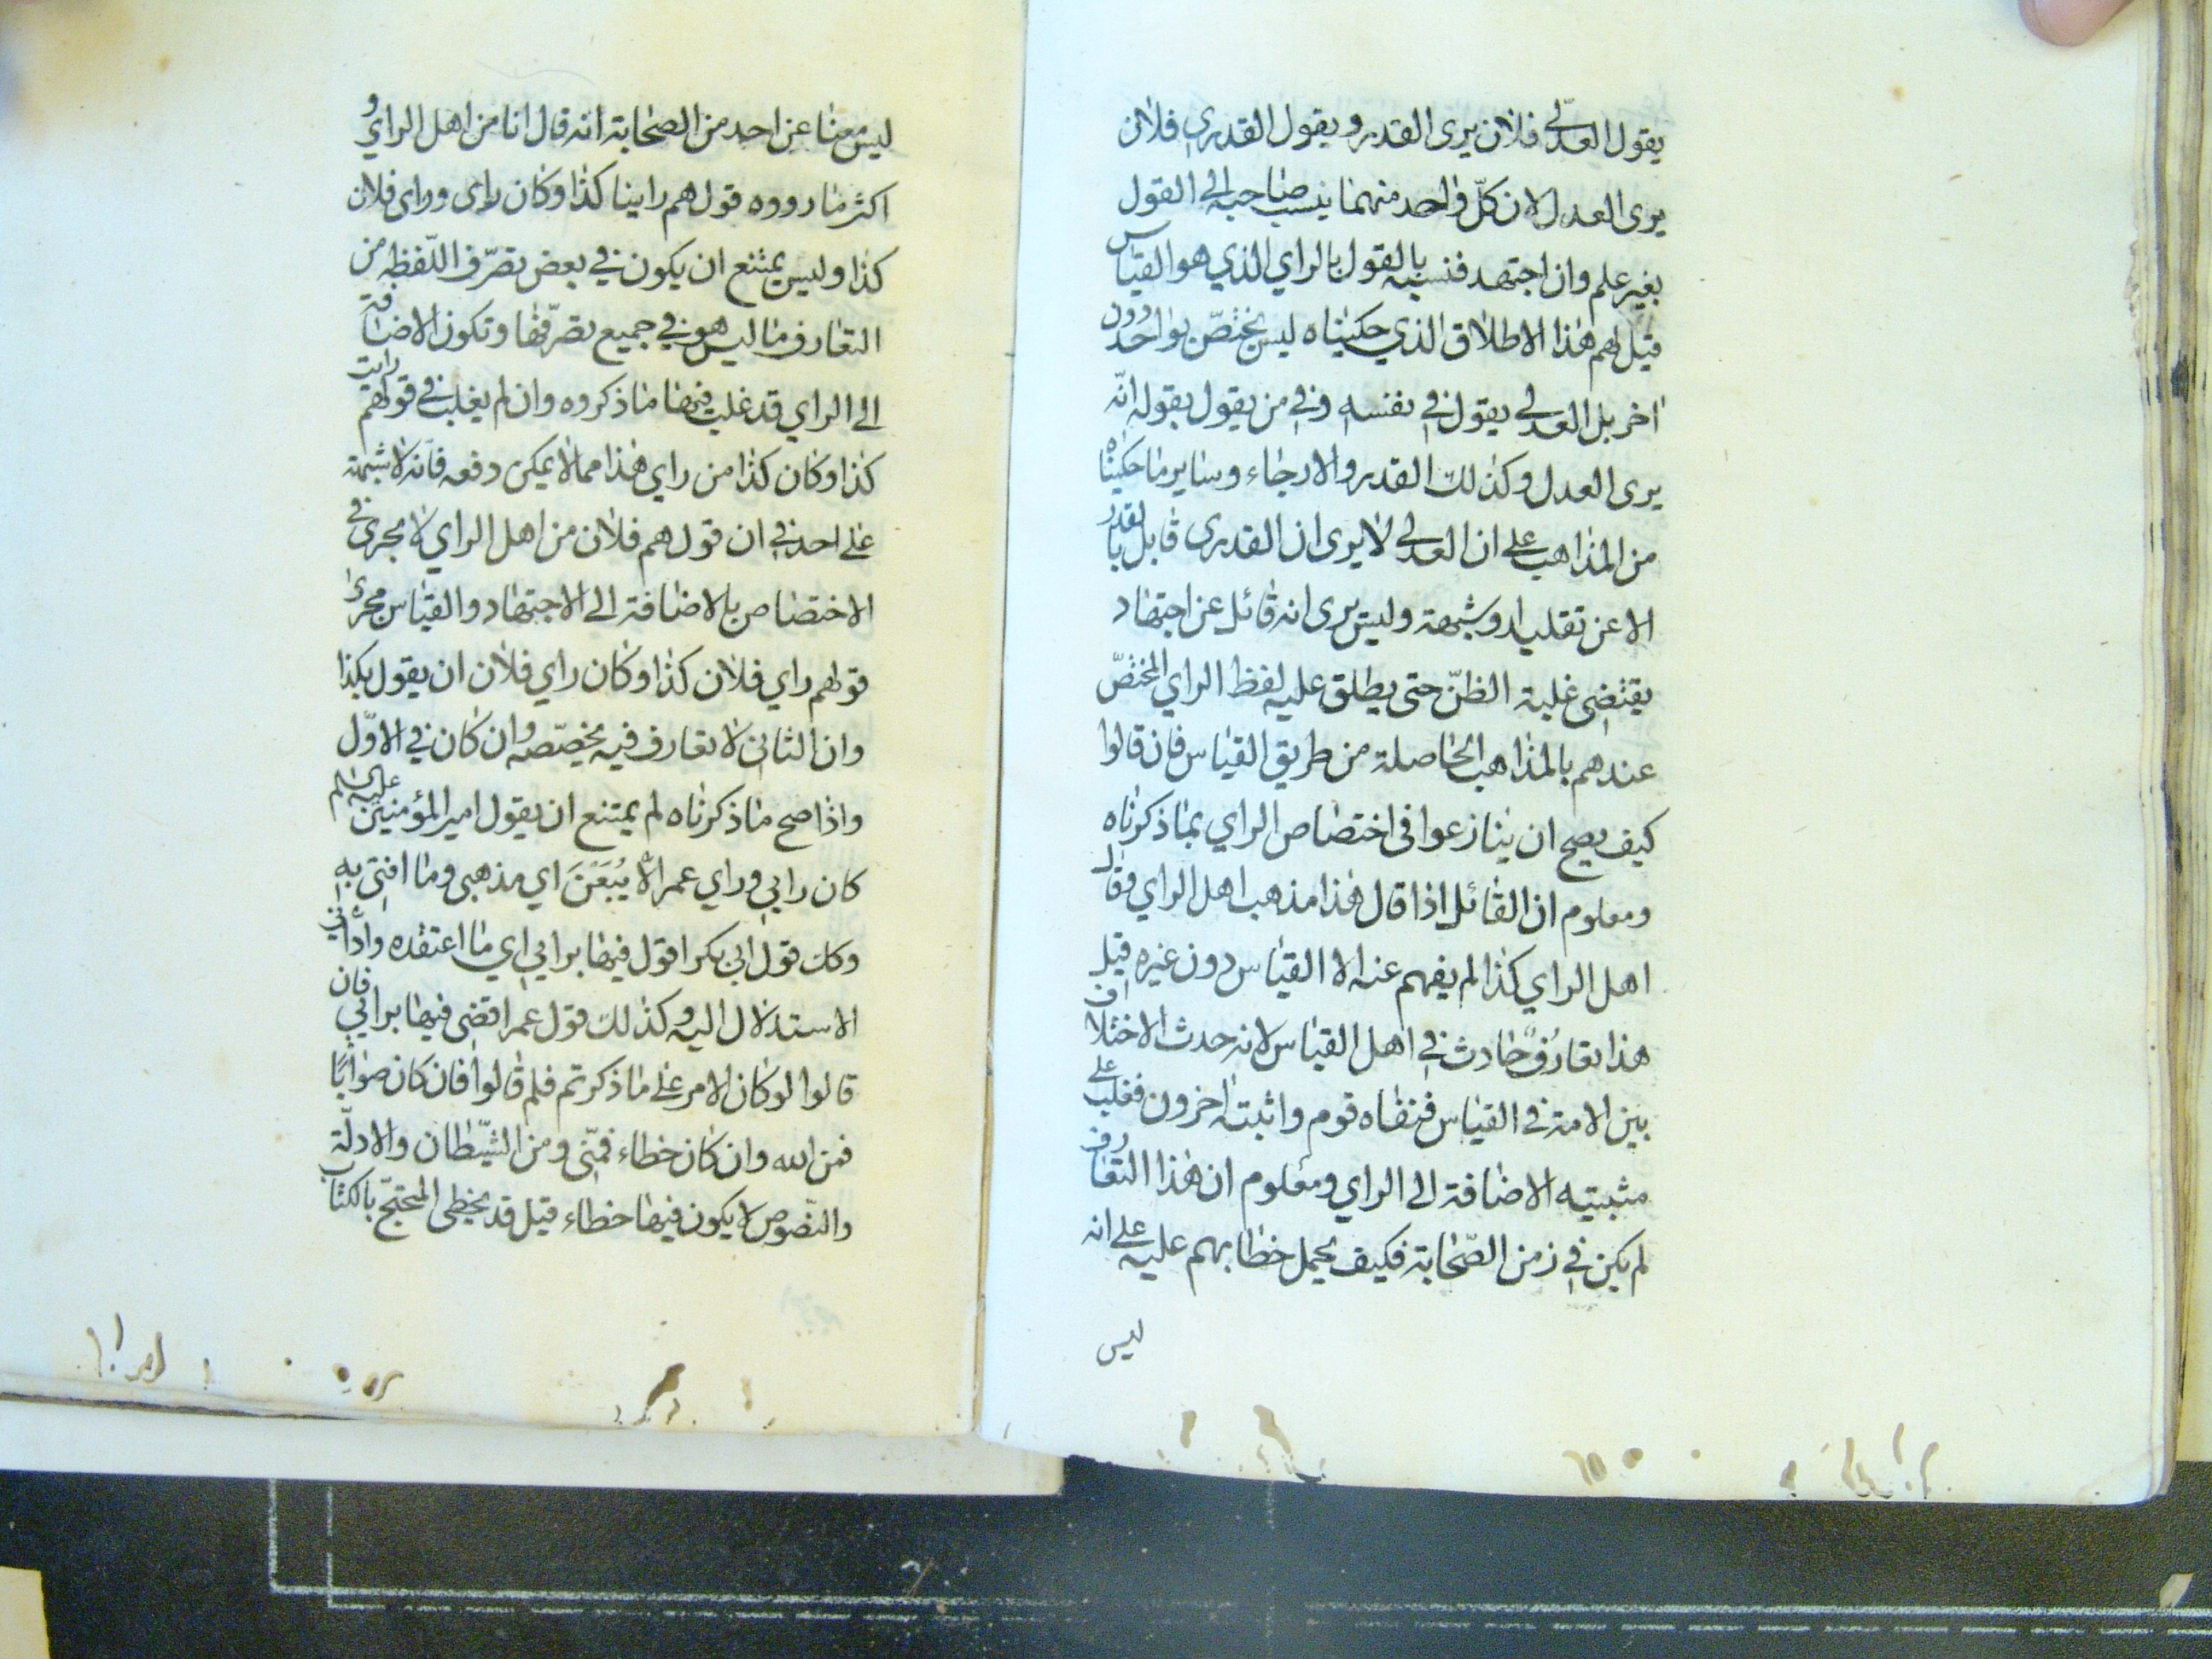 يقول العدلى فلان يرى القدر ويقول القدرى فلان
يرى العدل لان كلّ واحد منهما ينسب صاحبه الى القول
بغير علم وان اجتهد فنسبه بالقول بالراي الذي هو القياس
قيل لهم هذا الاطلاق الذي حكيناه ليس يختصّ بواحد دون
اخر بل العدلى يقول في نفسه وفي من يقول بقوله انّه
يرى العدل وكذلك القدر والارجاء وساير ما حكيناه
من المذاهب على ان العدلى لا يرى ان القدرى قايل بالقدر
الا عن تقليد او شبهة وليس يرى انه قائل عن اجتهاد
يقتضى غلبة الظنّ حتى يطلق عليه لفظ الراي المختصّ
عندهم بالمذاهب الحاصلة من طريق القياس فان قالوا
كيف يصح ان ينازعوا فى اختصاص الراي بما ذكرناه
ومعلوم ان القائل اذا قال هذا مذهب اهل الراي وقال
اهل الراي كذا لم يفهم عنه الا القياس دون غيره قيل
هذا تعارُفٌ حادث في اهل القياس لانه حدث الاختلاف
بين الامة في القياس فنفاه قوم واثبته اخرون فغلب على
مثبتيه الاضافة الى الراي ومعلوم ان هذا التعارف
لم يكن في زمن الصّحابة فكيف يحمل خطابهم عليه على انه
ليس
ليس معنا عن احد من الصحابة انه قال انا من اهل الراي و
اكثر ما رووه قولهم راينا كذا وكان راى وراى فلان
كذا وليس يمتنع ان يكون في بعض تصرّف اللّفظه من
التعارف ما ليس هو في جميع تصرّفها وتكون الاضافة
الى الراي قد غلب فيها ما ذكروه وان لم يغلب في قولهم رايت
كذا وكان كذا من راي هذا مما لا يمكن دفعه فانه لا شبهة
على احد في ان قولهم فلان من اهل الراي لا يجرى في
الاختصاص بالاضافة الى الاجتهاد والقياس مجرى
قولهم راي فلان كذا وكان راي فلان ان يقول بكذا
وان الثانى لا تعارف فيه يخصّصه وان كان في الاوّل
واذا صح ما ذكرناه لم يمتنع ان يقول امير المؤمنين عليه السلم
كان رايي وراي عمر الّا يُبَعْنَ اي مذهبى وما افتى به
وكك قول ابى بكر اقول فيها برايي اي ما اعتقده وادّاني
الاستدلال اليه وكذلك قول عمر اقضى فيها برايي فان
قالوا لو كان الامر على ما ذكرتم فلم قالوا فان كان صوابًا
فمن الله وان كان خطاء فمنّى ومن الشّيطان والادلّة
والنّصوص لا يكون فيها خطاء قيل قد يخطى المحتجّ بالكتاب